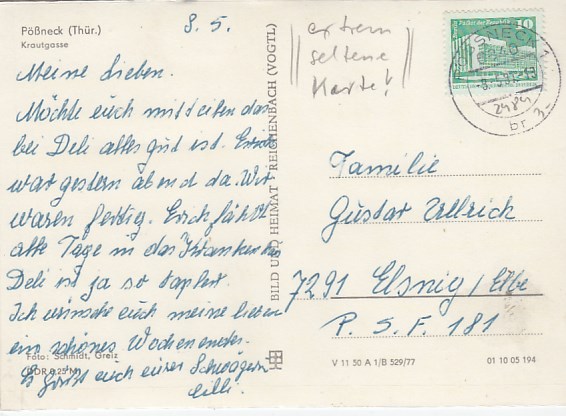 Pößneck (Thür.)
Krautgasse
8. 5.
Meine Lieben.
Möchte euch mitteilen das
bei Deli alles gut ist. Erich
war gestern abend da. Wir
waren fertig. Erich fährt
alle Tage in das Kranken
Deli ist ja so tapfer.
Ich wünsche euch meine lieben
ein schönes Wochenende.
Es grüßt euch eure Schwägerin
Cilli.
Foto: Schmidt, Greiz
DDR 0,25 M
BILD UND HEIMAT REICHENBACH (VOGTL)
extrem
seltene
Karte!
10
Familie
Gustav Ullrich
7291 Elsnig / Elbe
P. S. F. 181
V 11 50 A 1/B 529/77
01 10 05 194